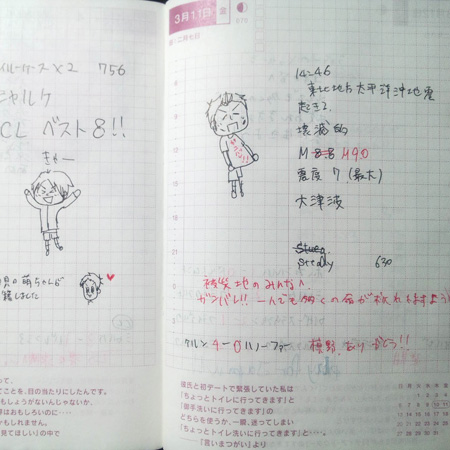 イルーナース×2 756
シャルケ
CL ベスト8!!
きゃー
萌ちゃんが
しました
て、
てことを、目の当たりにしたんです。
もしょうがないんじゃないか、
事はおもしろいのに‥‥
かもしれません。
見てほしい」の中で
3月11日 金
070
14:46
東北地方太平洋沖地震
起きる
壊滅的
M 8.8 M9.0
震度 7 (最大)
大津波
steady 630
被災地のみんな、
ガンバレ!! 一人でも多くの命が救われますよう
ケルン 4-0 ハノーファー 槙野、ありがとう!!
彼氏と初デートで緊張していた私は
「ちょっとトイレに行ってきます」と
「御手洗いに行ってきます」の
どちらを使うか、一瞬、迷ってしまい
「ちょっとトイレ洗いに行ってきます」と‥‥。
『言いまつがい』より